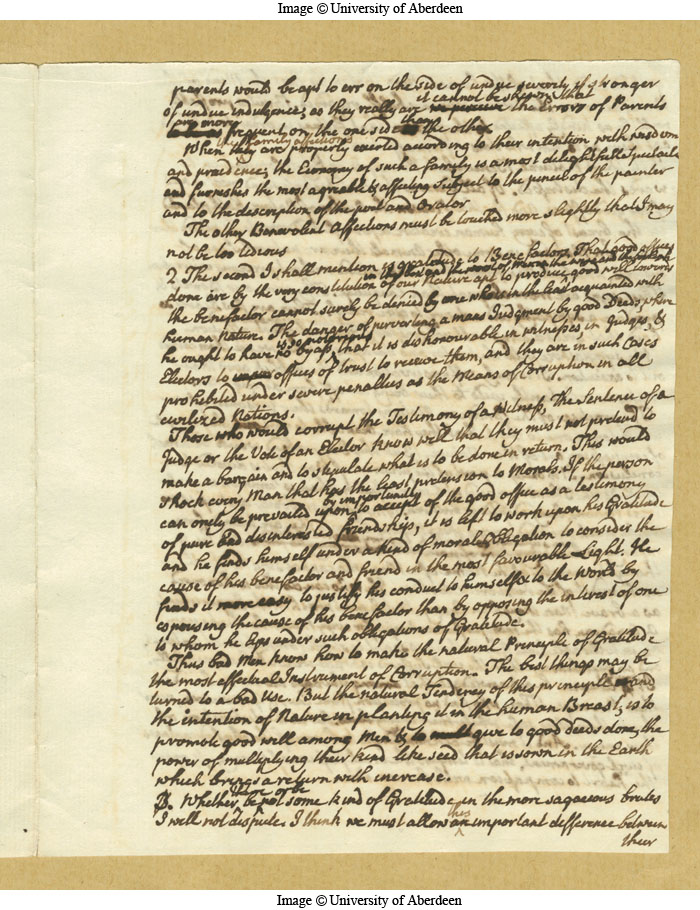 Image © University of Aberdeen
parents would be apt to err on the side of undue severity if stronger
it cannot be shown that
of undue indulgence; as they really are we perceive the Errors of Parents
are more then
frequent, on the one side the other
my family affections
When they are properly exerted according to their intention with wisdom
and prudence; the Economy of such a family is a most delightfull Spectacle
and furnishes the most agreable & affecting Subject to the pencil of the painter
and to the description of the poet and Orator
The other Benevolent Affections must be touched more slightly that I may
not be too tedious
2 The second I shall mention is gratitude to Benefactors. That good offices
done are by the very constitution of our Nature apt to produce good will towards
the benefactor cannot surely be denied by one who is in the least acquainted with
human Nature. The danger of perverting a mans Judgment by good Deeds, where
is so notorious
he ought to have no byass, that it is dishonourable in witnesses, in Judges, &
Electors to offices of trust to receive them, and they are in such Cases
prohibited under severe penalties as the Means of Corruption in all
civilized Nations.
Those who would corrupt the Testimony of a witness, the Sentence of a
Judge or the Vote of an Elector know well that they must not pretend to
make a bargain and to stipulate what is to be done in return. This would
shock every Man that has the least pretension to Morals. If the person
by importunity
can onely be prevailed upon to accept of the good office as a testimony
of pure and disinterested friendship, it is left to work upon his Gratitude
and he finds himself under a kind of moral Obligation to consider the
cause of his benefactor and friend in the most favourable Light. He
finds it more easy to justify his conduct to himself & to the World by
espousing the cause of his benefactor than by opposing the interest of one
to whom he lys under such obligations of Gratitude.
Thus bad Men know how to make the natural Principle of Gratitude
the most affectual Instrument of Corruption. The best things may be
turned to a bad Use. But the natural Tendency of this principle and
the intention of Nature in planting it in the human Breast, is to
promote good will among Men & to give to good deeds done, the
power of multiplying their kind like seed that is sown in the Earth
which brings a return with increase.
there be or be
3. Whether, be not some kind of Gratitude in the more sagacious brutes
this
I will not dispute. I think we must allow an important difference between
their
Image © University of Aberdeen